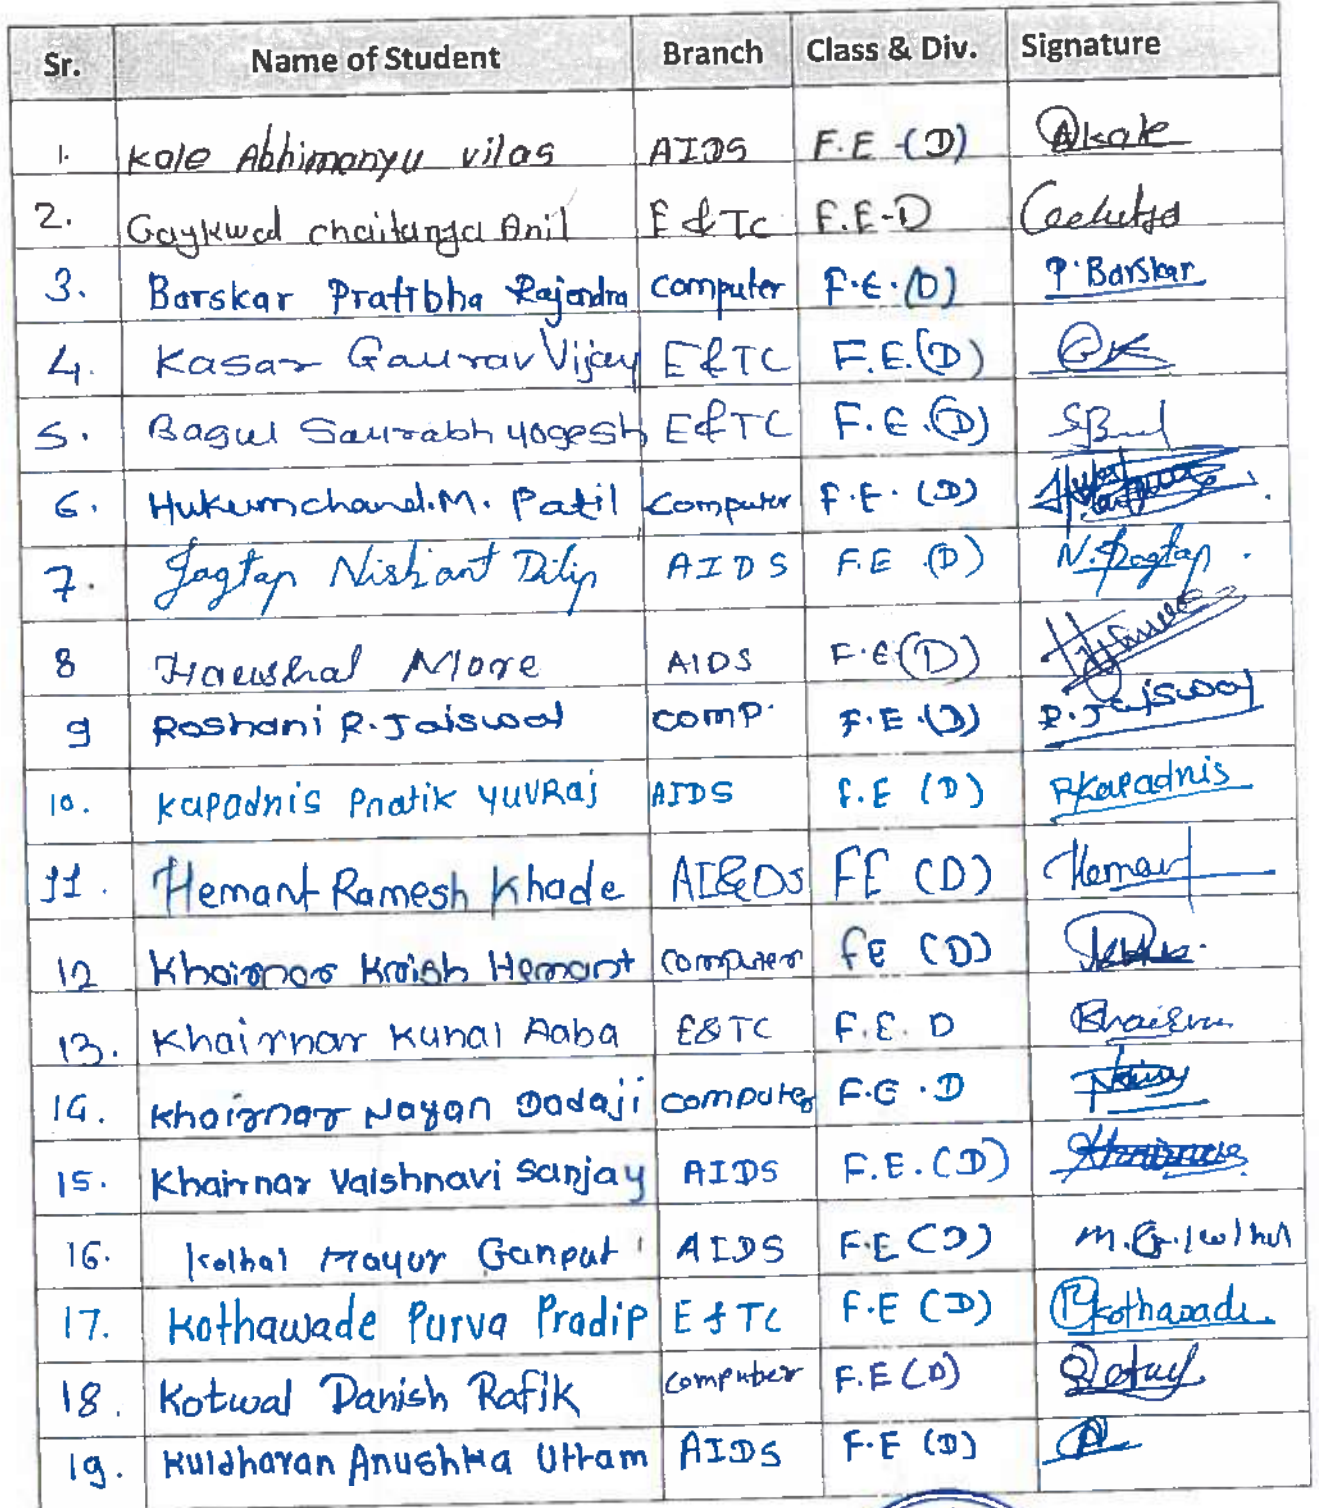 Sr. Name of Student Branch Class & Div. Signature
1. Kale Abhimanyu vilas AIDS F.E -(D) Akale
2. Gaykwad chaitanya Anil E & Tc F.E-D
3. Barskar Pratibha Rajendra computer F.E.(D) P.Barskar
4. Kasar Gaurav Vijay E&TC F.E.(D) GK
5. Bagul Saurabh yogesh E&TC F.E.(D)
6. Hukumchand.M. Patil computer F.E. (D)
7. Jagtap Nishant Dilip AIDS F.E (D) N.Jagtap.
8 Harshal More AIDS F.E(D)
9 Roshani R.Jaiswal comp. F.E.(D) R.Jaiswal
10. Kapadnis Pratik YUVRaj AIDS F.E (D) PKapadnis
11. Hemant Ramesh Khade AI&DS FE (D) Hemant
12 Khairnar Krish Hemant computer FE (D)
13. Khairnar Kunal Aaba E&TC F.E. D
14. Khairnar Nayan Dadaji computer F.E.D
15. Khairnar Vaishnavi Sanjay AIDS F.E.(D)
16. Kolhal Mayur Ganpat AIDS F.E(D)
17. Kothawade Purva Pradip E & TC F.E (D) PKothawade.
18. Kotwal Danish Rafik computer F.E(D)
19. Kuldharan Anushka Uttam AIDS F.E (D)